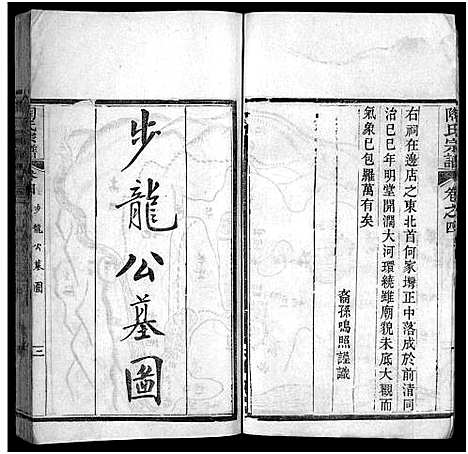 陶氏宗譜
卷之四
右祠在邊店之東北首何家塝正中落成於前清同
治己巳年明堂開濶大河環繞雖廟貌未底大觀而
氣象已包羅萬有矣
裔孫鳴照謹識
步龍公墓圖
陶氏宗譜
卷之四
步龍公墓圖
三